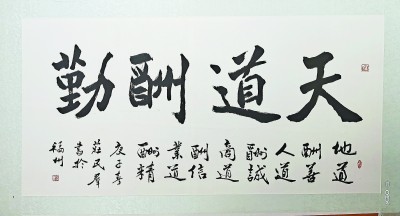 天道酬勤
地道
酬善
人道
酬誠
商道
酬信
業道
酬精
庚子春
莊民羣
書於
福州